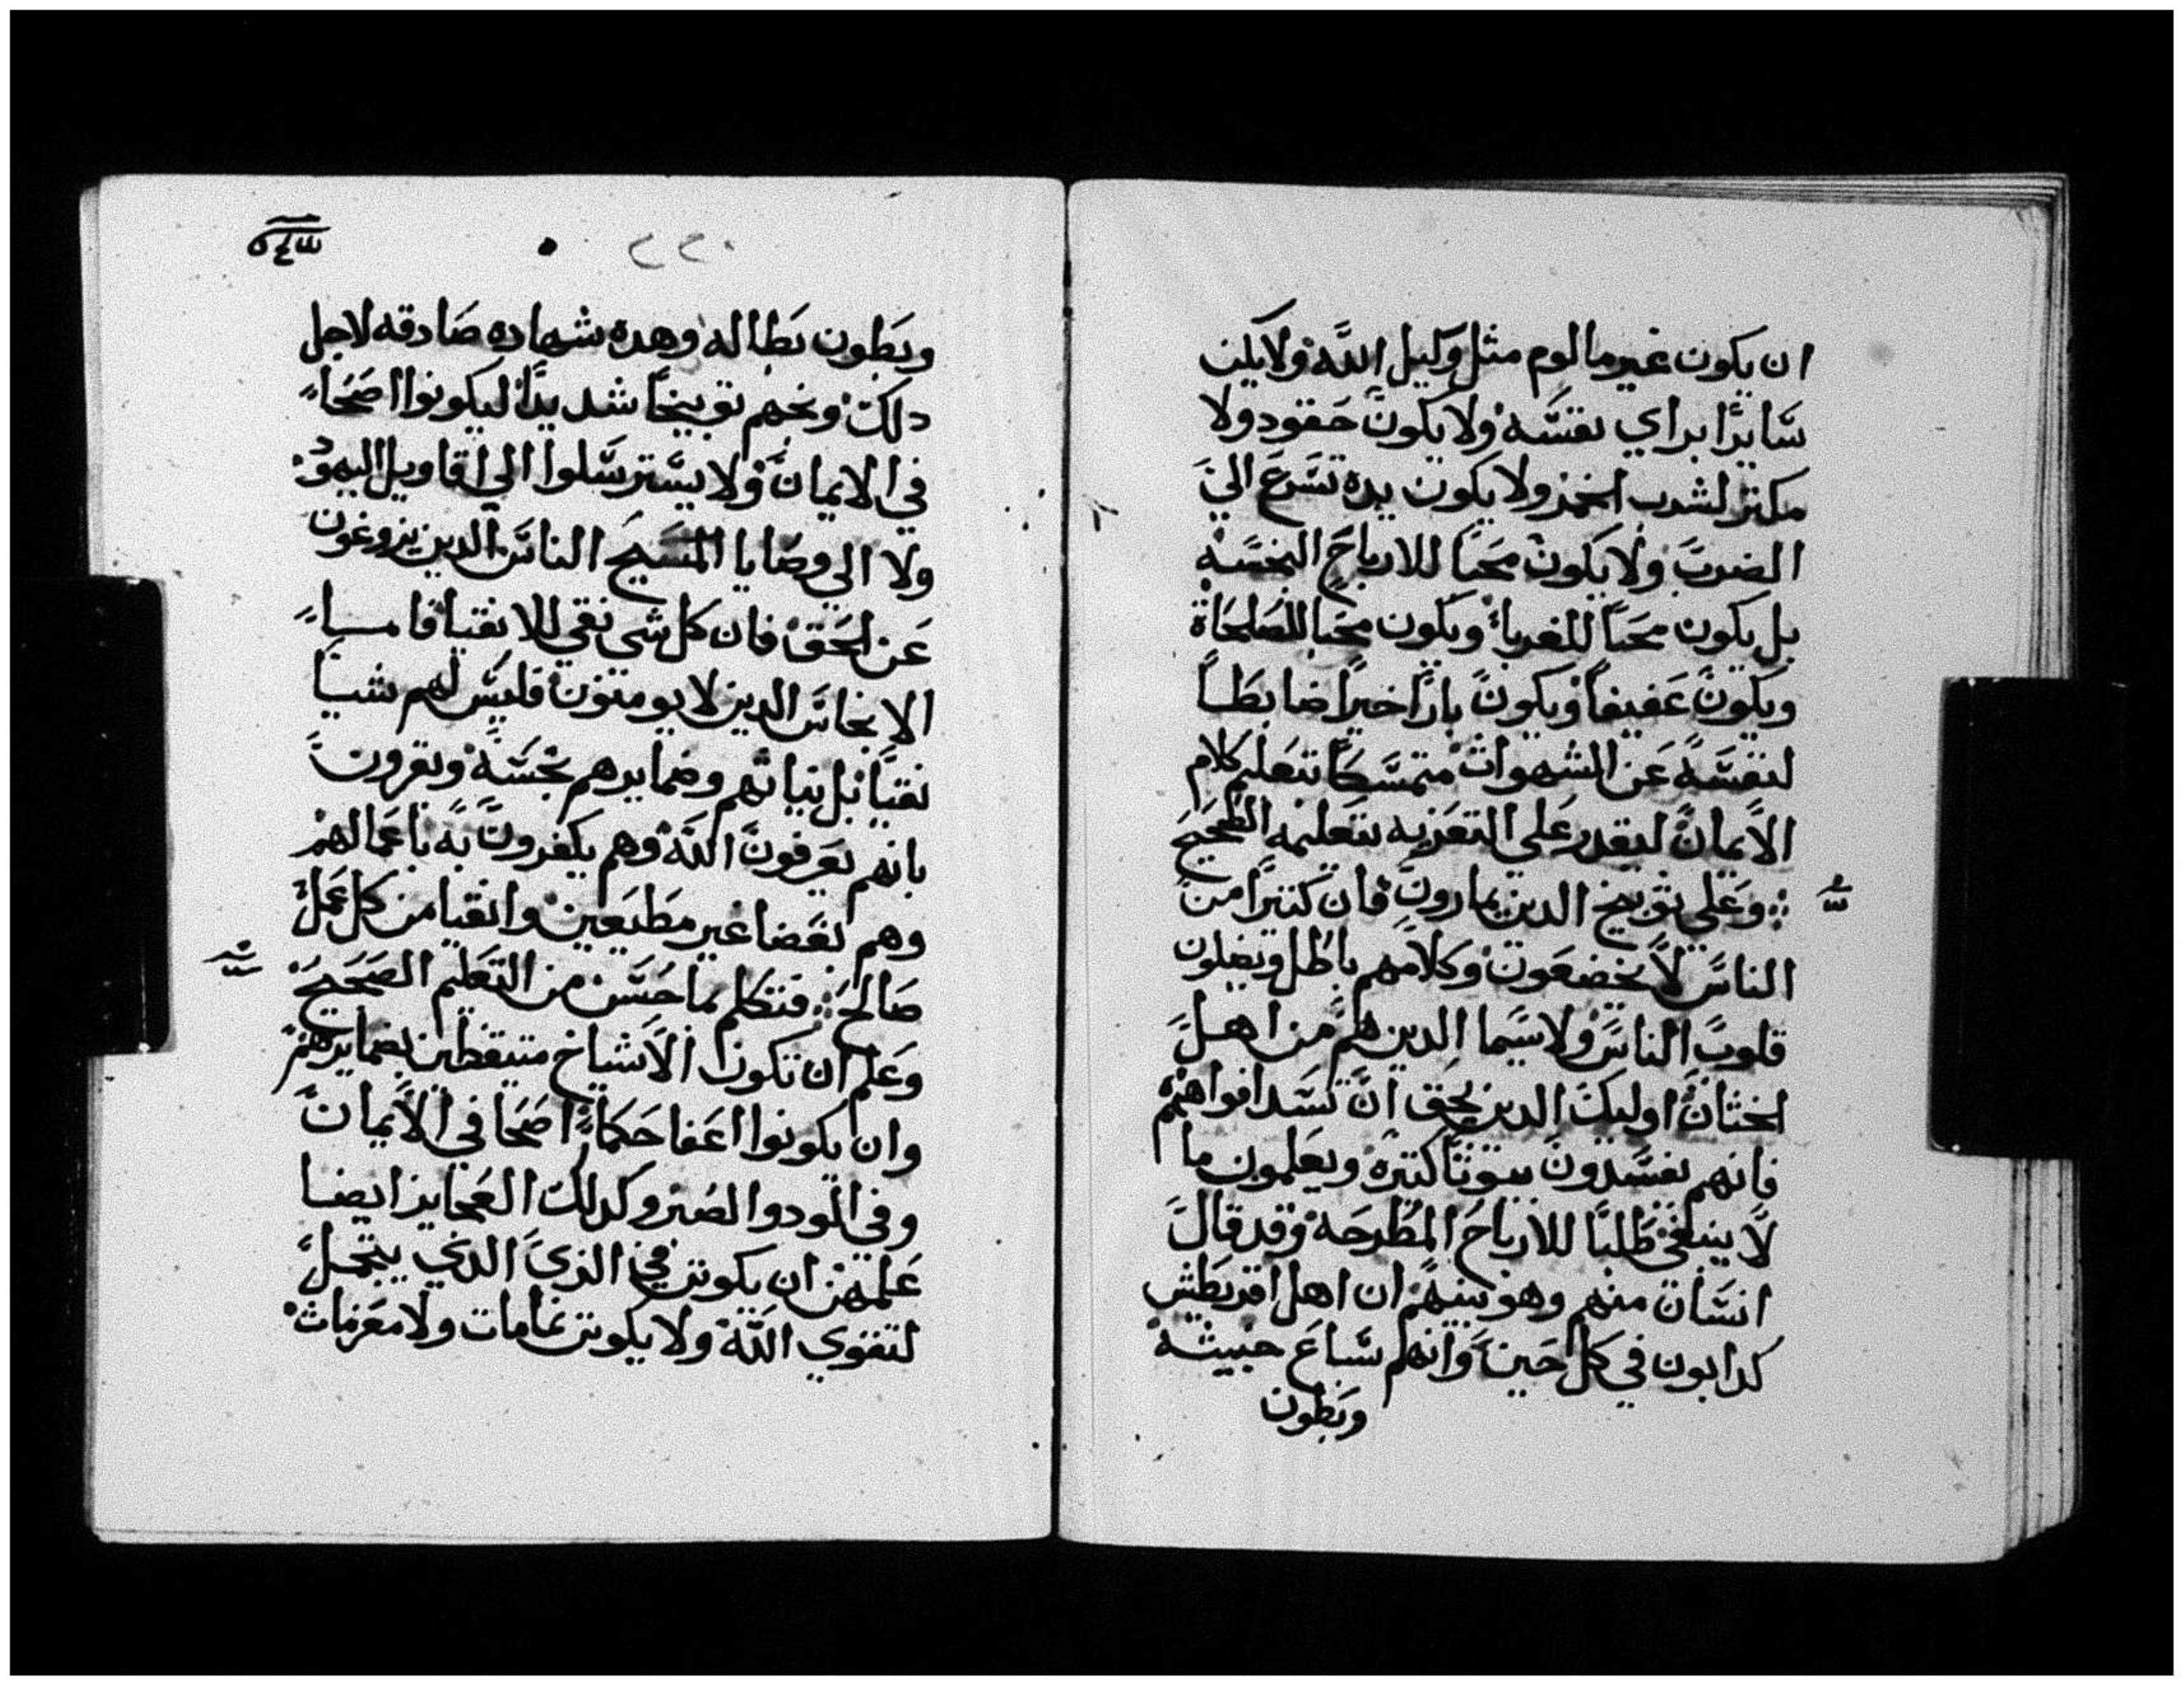 ان يكون غير مالوم مثل وكيل الله ولا يكن
سايرا براي نفسه ولا يكون حقود ولا
مكتر لشرب الخمر ولا يكون يده تسرع الي
الضرب ولا يكون محبا للارباح النجسه
بل يكون محبا للغربا ويكون محبا للصلحاة
ويكون عفيفا ويكون بارا خيرا ضابطا
لنفسه عن الشهوات متمسكا بتعليم كلام
الايمان ليقدر علي التعزيه بتعليمه الصحيح
وعلي توبيخ الدين يمارون فان كتيرا من
الناس لا يخضعون وكلامهم باطل ويضلون
قلوب الناس ولا سيما الدين هم من اهل
الختان اوليك الدين يحق ان تسد افواههم
فانهم يفسدون بيوتا كتيره ويعلمون ما
لا ينبغي طلبا للارباح المطرحه وقد قال
انسان منهم وهو نبيهم ان اهل اقريطش
كدابون في كل حين وانهم سباع خبيثه
وبطون
٢٢٠
وبطون بطاله وهده شهاده صادقه لاجل
دلك وبخهم توبيخا شديدا ليكونوا اصحا
في الايمان ولا يسترسلوا الي اقاويل اليهود
ولا الي وصايا المسيح الناس الدين يزوغون
عن الحق فان كل شي نقي للانقيا فاما
الانجاس الدين لا يومنون فليس لهم شيا
نقيا بل نياتهم وضمايرهم نجسه ويقرون
بانهم يعرفون الله وهم يكفرون به باعمالهم
وهم بغضا غير مطيعين وانقيا من كل عمل
صالح فتكلم بما حسن من التعليم الصحيح
وعلم ان تكون الاشياخ متيقظين بضمايرهم
وان يكونوا اعفا حكما اصحا في الايمان
وفي الود والصبر وكدلك العجايز ايضا
علمهن ان يكونن في الزي الدي يتجمل
لتقوي الله ولا يكونن نمامات ولا مغرمات